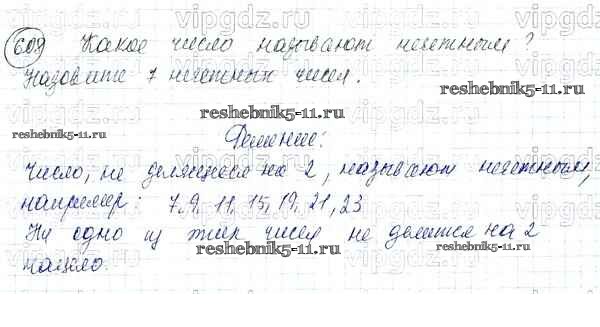 609 Какое число называют нечетным?
Назовите 7 нечетных чисел.
reshebnik5-11.ru
reshebnik5-11.ru
Решение:
Число, не делящееся на 2, называют нечетным,
например: 7, 9, 11, 15, 19, 21, 23
reshebnik5-11.ru
Ни одно из этих чисел не делится на 2
reshebnik5-11.ru
нацело.
reshebnik5-11.ru